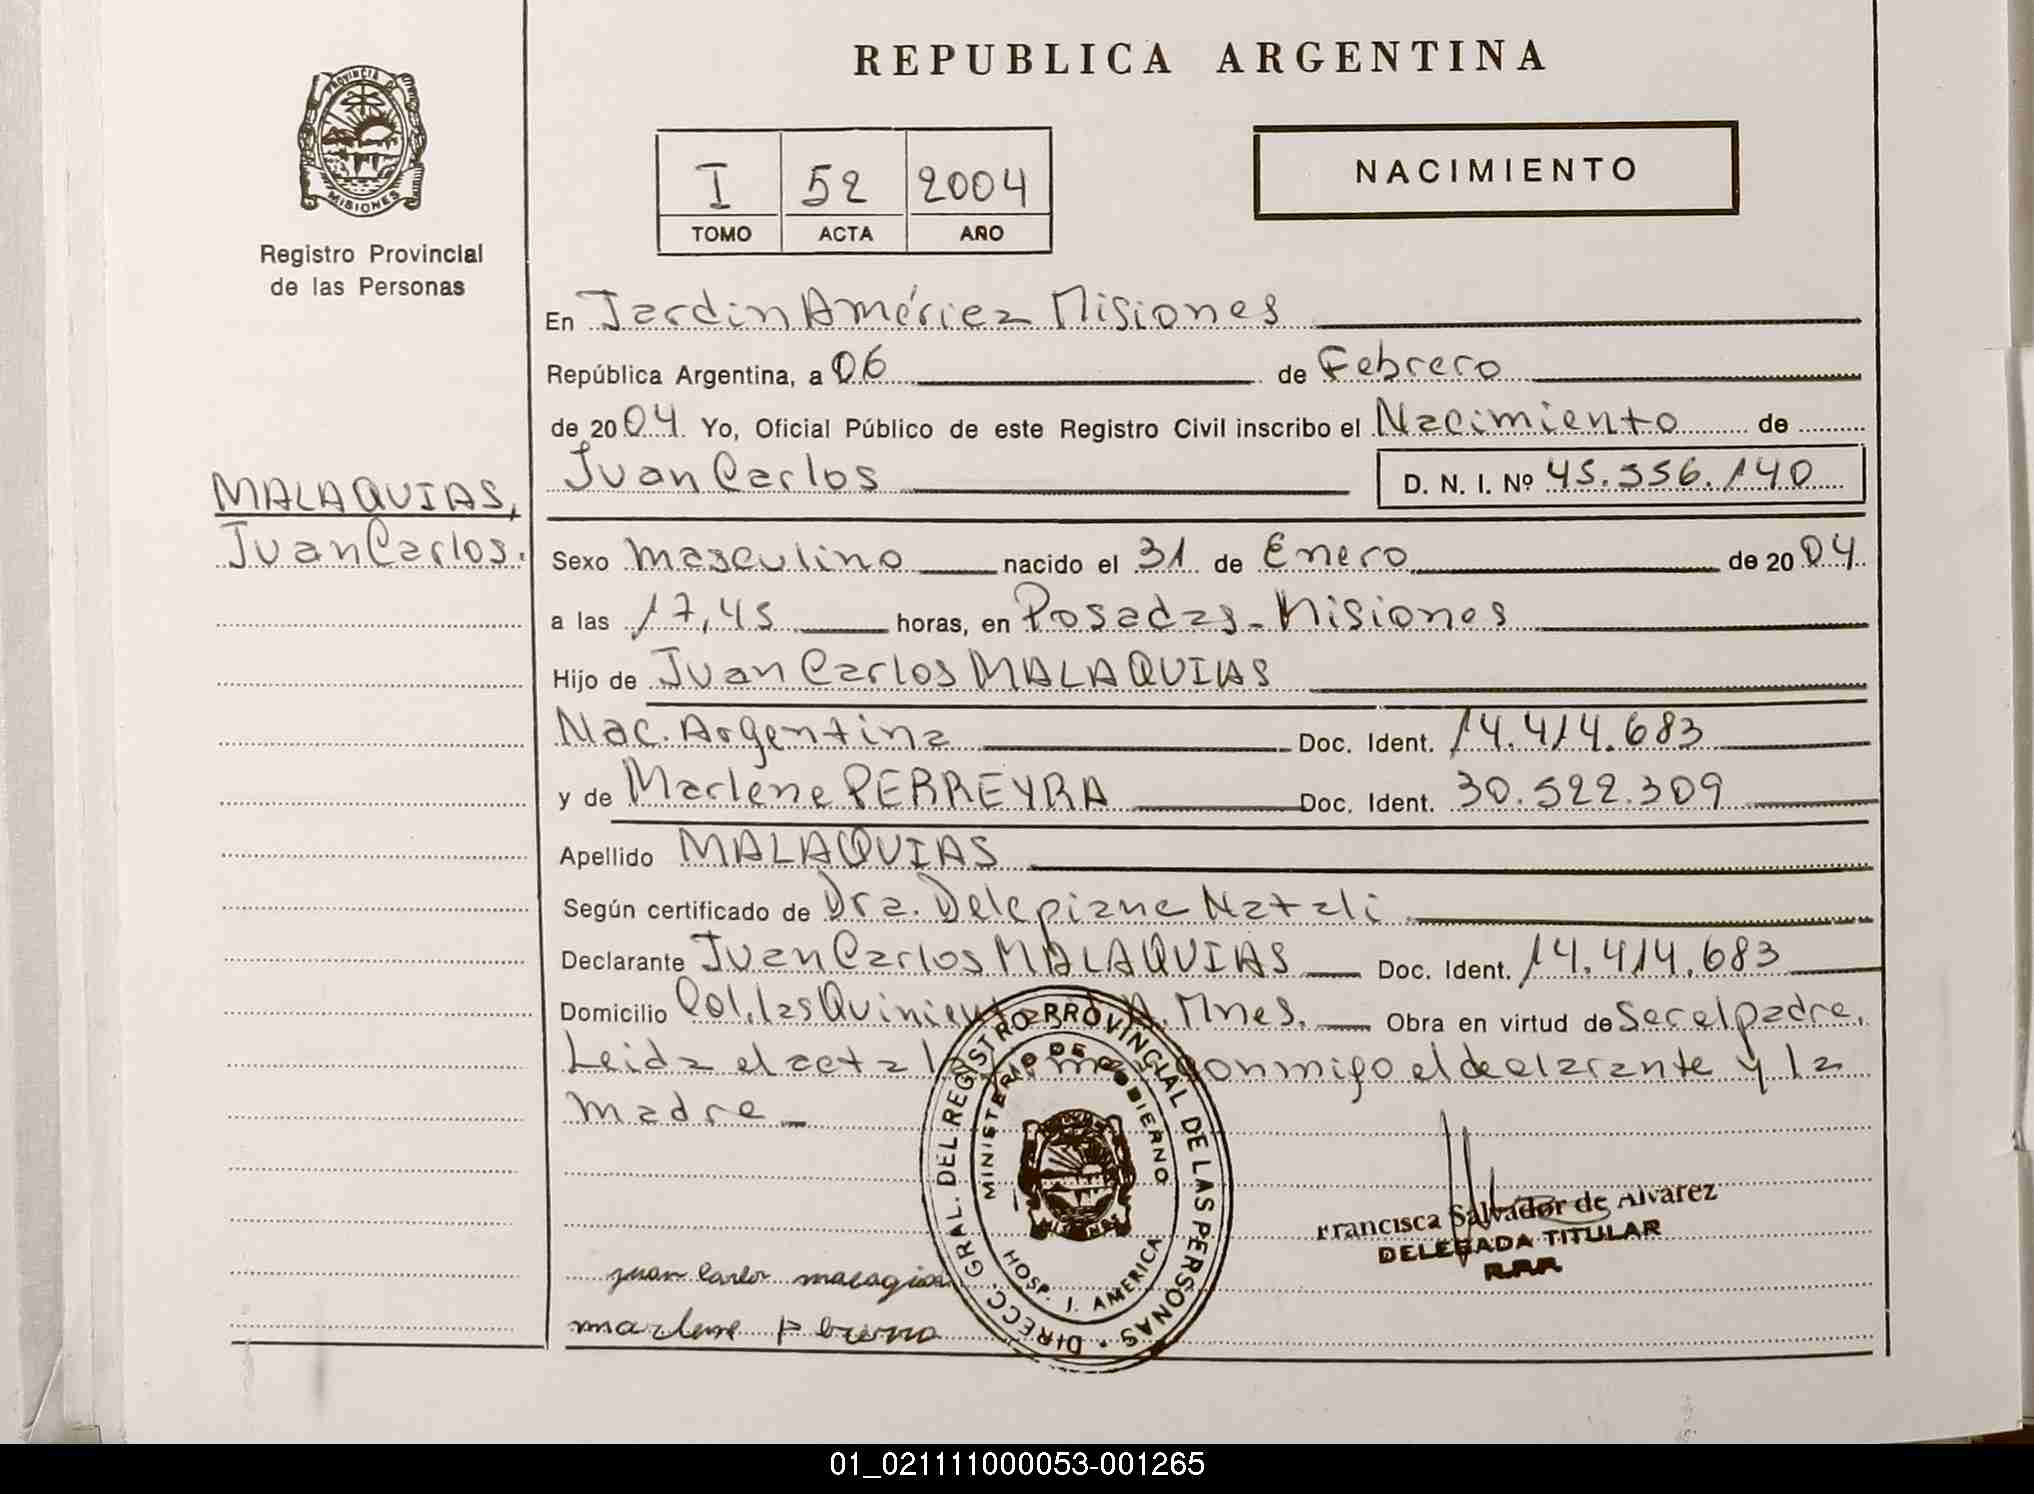 REPUBLICA ARGENTINA
PROVINCIA DE
MISIONES
Registro Provincial
de las Personas
I 52 2004
TOMO ACTA AÑO
NACIMIENTO
En Jardin América Misiones
República Argentina, a 06 de Febrero
de 2004 Yo, Oficial Público de este Registro Civil inscribo el Nacimiento de
Juan Carlos D. N. I. Nº 45.556.140
MALAQUIAS,
Juan Carlos.
Sexo masculino nacido el 31 de Enero de 2004
a las 17,45 horas, en Posadas - Misiones
Hijo de Juan Carlos MALAQUIAS
Nac. Argentina Doc. Ident. 14.414.683
y de Marlene PERREYRA Doc. Ident. 30.522.309
Apellido MALAQUIAS
Según certificado de Dra. Delepiane Natali
Declarante Juan Carlos MALAQUIAS Doc. Ident. 14.414.683
Domicilio Col. las Quinientas J.A. Mnes. Obra en virtud de Ser el padre.
Leida el acta la firma conmigo el declarante y la
madre -
DIRECC. GRAL. DEL REGISTRO PROVINCIAL DE LAS PERSONAS
MINISTERIO DE GOBIERNO
MISIONES
HOSP. J. AMERICA
Francisca Salvador de Alvarez
DELEGADA TITULAR
R.P.P.
juan Carlos malaqias
marlene
01_021111000053-001265